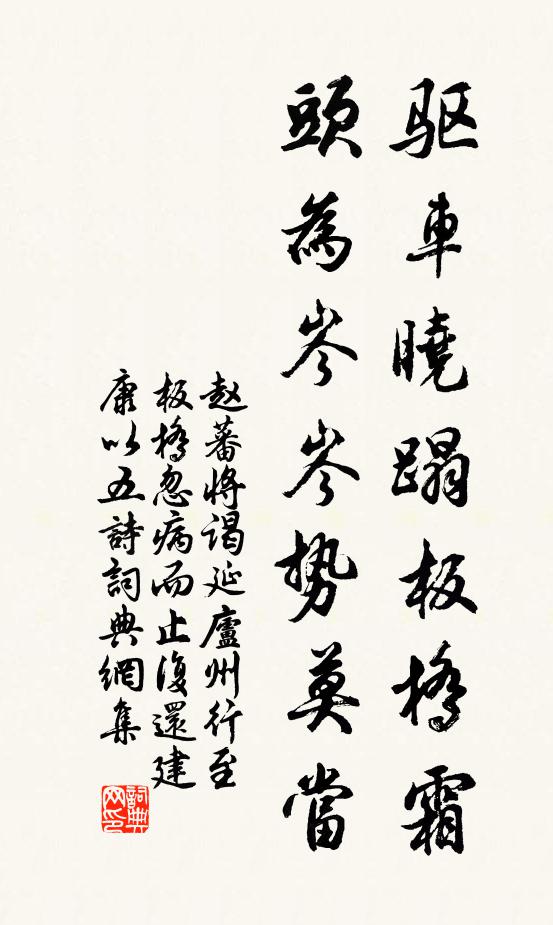 驱車曉蹋板橋霜
頭為岑岑勢莫當
赵蕃将谒延廬州行至
板橋忽病而止復還建
康以五詩詞典網集
詞典网印